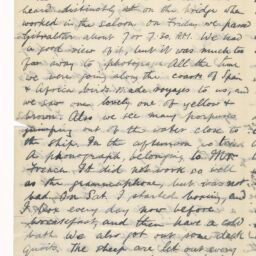 heard distinctly, at on the bridge when
worked in the saloon. On Friday we passed
Gibraltar about 7 or 7.30, P.M. We had
a good view of it, but it was much to
far away to photograph. All the time
we were going along the coasts of Spain
& Africa birds made voyages to us, and
we saw one lovely one of yellow &
brown. Also we see many porpoises
jumping out of the water close to
the ship. In the afternoon
A phonograph belonging to Mr.
French. It did not work so well
as the grammaphone, but was not
bad. On Sat. I started boxing, and
I box every day now before
breakfast, and then have a cold
bath. We also got out some deck
quoits. The sheep are let out every